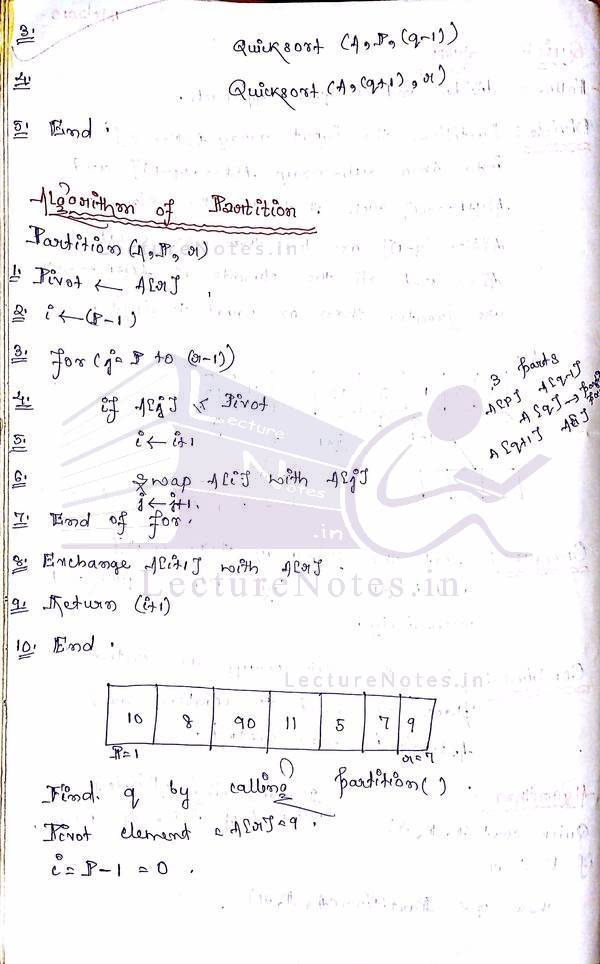 3. Quicksort (A, P, (q-1))
4. Quicksort (A, (q+1), r)
5. End.
Algorithm of Partition.
Partition (A, P, r)
1. Pivot ← A[r]
2. i ← (P-1)
3. for (j = P to (r-1))
4. if A[j] ≤ Pivot
5. i ← i+1
6. Swap A[i] with A[j]
j ← j+1.
7. End of for.
8. Exchange A[i+1] with A[r].
9. Return (i+1)
10. End.
3 parts
A[P] A[q-1]
A[q] →
A[q+1] A[r]
Lecture Notes .in
LectureNotes.in
LectureNotes.in
LectureNotes.in
10 8 90 11 5 7 9
P=1 r=7
Find q by calling partition().
Pivot element = A[r] = 9.
i = P-1 = 0.